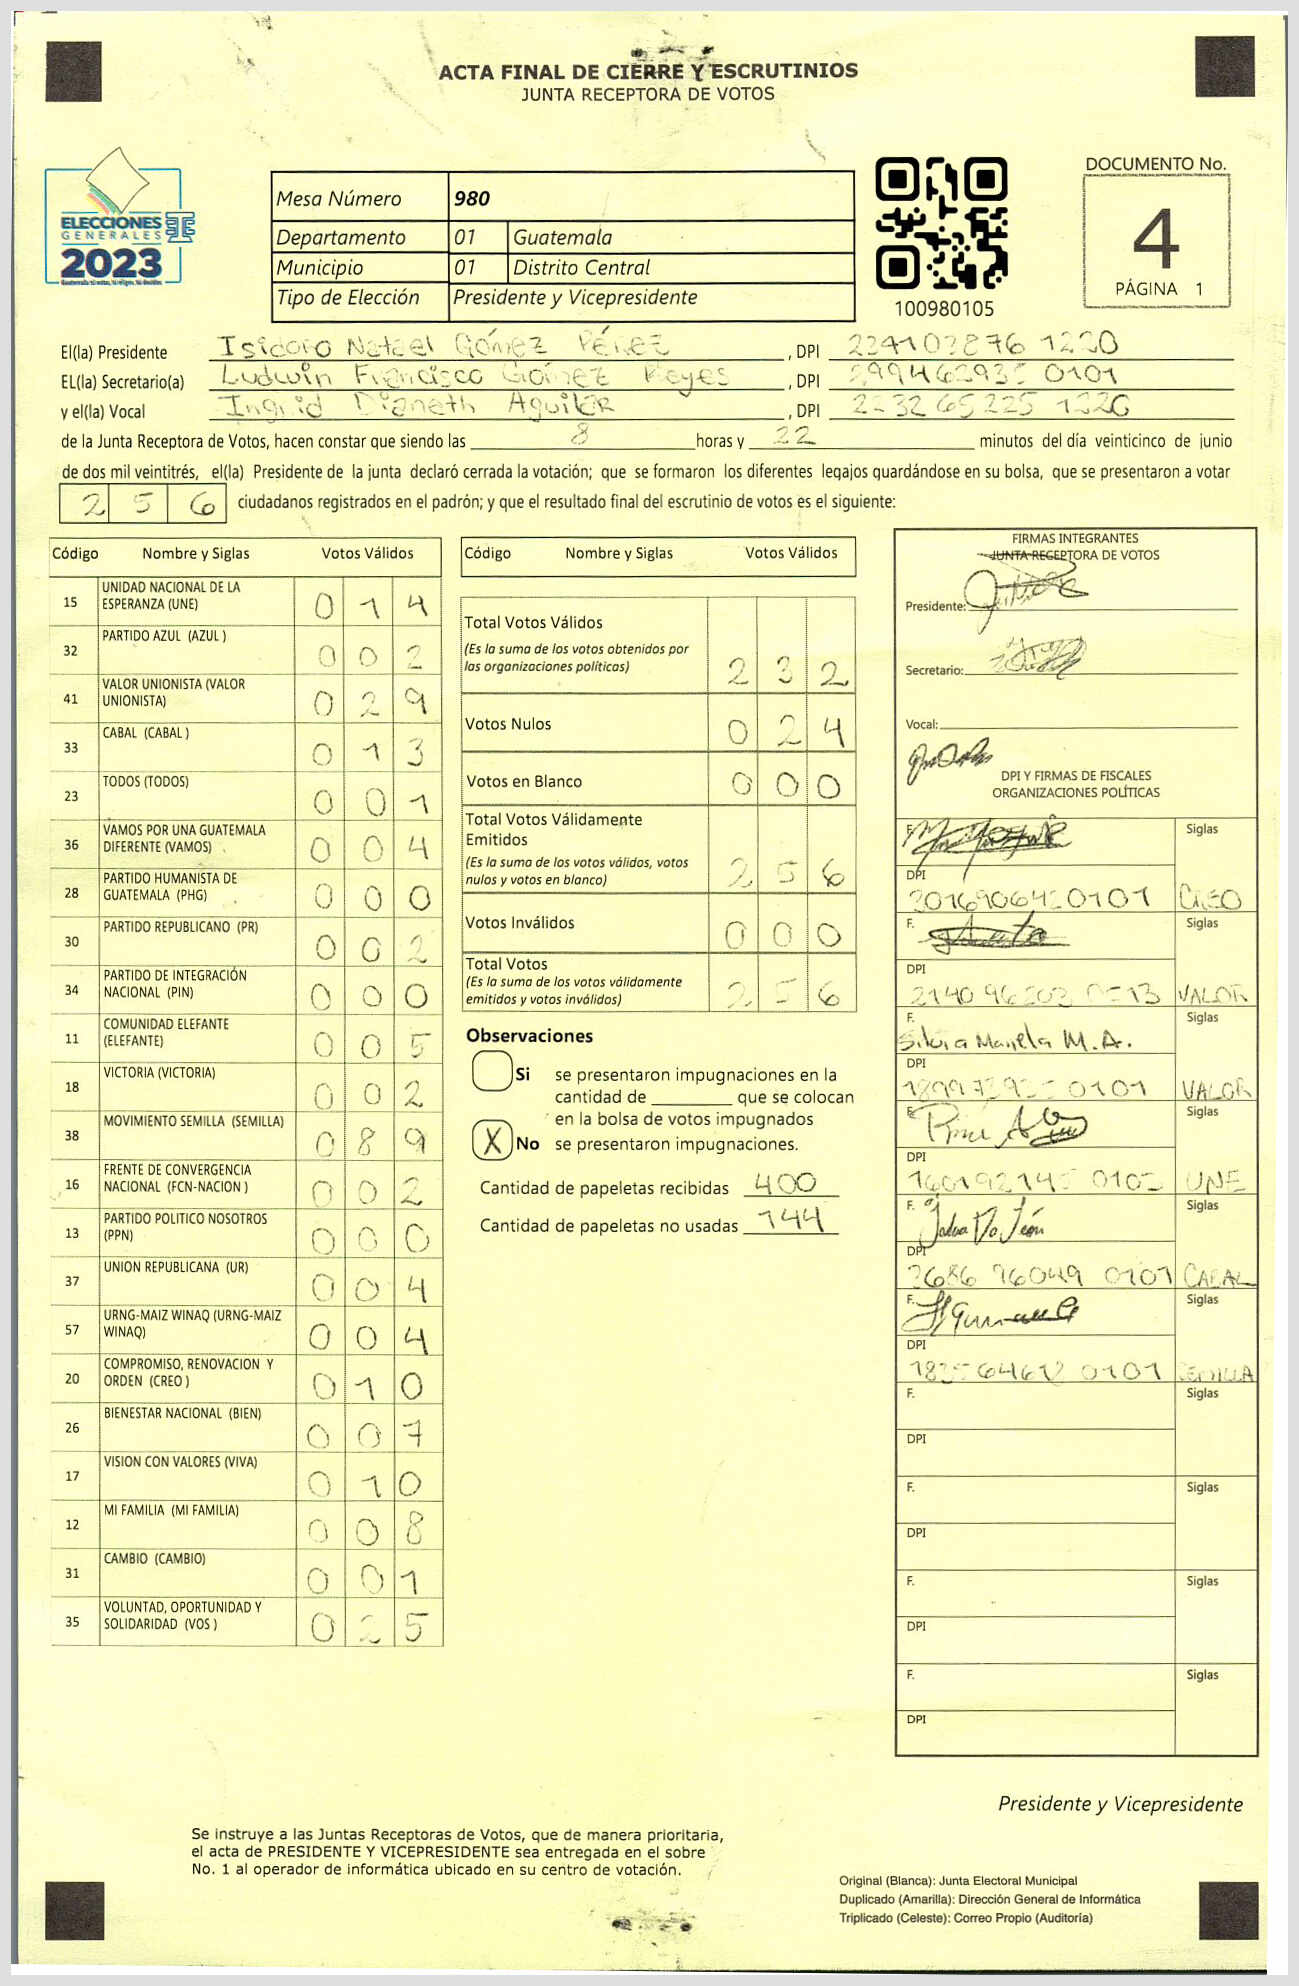 ACTA FINAL DE CIERRE Y ESCRUTINIOS
JUNTA RECEPTORA DE VOTOS
ELECCIONES
GENERALES
2023
Mesa Número 980
Departamento 01 Guatemala
Municipio 01 Distrito Central
Tipo de Elección Presidente y Vicepresidente
100980105
DOCUMENTO No.
4
PÁGINA 1
El(la) Presidente Isidoro Natael Gómez Pérez , DPI 2241038761220
EL(la) Secretario(a) Ludwin Francisco Gómez Reyes , DPI 0101
y el(la) Vocal Ingrid Dianeth Aguilar , DPI
de la Junta Receptora de Votos, hacen constar que siendo las 8 horas y 22 minutos del día veinticinco de junio
de dos mil veintitrés, el(la) Presidente de la junta declaró cerrada la votación; que se formaron los diferentes legajos guardándose en su bolsa, que se presentaron a votar
256 ciudadanos registrados en el padrón; y que el resultado final del escrutinio de votos es el siguiente:
Código Nombre y Siglas Votos Válidos
15 UNIDAD NACIONAL DE LA ESPERANZA (UNE) 014
32 PARTIDO AZUL (AZUL ) 002
41 VALOR UNIONISTA (VALOR UNIONISTA) 029
33 CABAL (CABAL ) 013
23 TODOS (TODOS) 001
36 VAMOS POR UNA GUATEMALA DIFERENTE (VAMOS) 004
28 PARTIDO HUMANISTA DE GUATEMALA (PHG) 000
30 PARTIDO REPUBLICANO (PR) 002
34 PARTIDO DE INTEGRACIÓN NACIONAL (PIN) 000
11 COMUNIDAD ELEFANTE (ELEFANTE) 005
18 VICTORIA (VICTORIA) 002
38 MOVIMIENTO SEMILLA (SEMILLA) 089
16 FRENTE DE CONVERGENCIA NACIONAL (FCN-NACION ) 002
13 PARTIDO POLITICO NOSOTROS (PPN) 000
37 UNION REPUBLICANA (UR) 004
57 URNG-MAIZ WINAQ (URNG-MAIZ WINAQ) 004
20 COMPROMISO, RENOVACION Y ORDEN (CREO ) 010
26 BIENESTAR NACIONAL (BIEN) 007
17 VISION CON VALORES (VIVA) 010
12 MI FAMILIA (MI FAMILIA) 008
31 CAMBIO (CAMBIO) 001
35 VOLUNTAD, OPORTUNIDAD Y SOLIDARIDAD (VOS ) 025
Código Nombre y Siglas Votos Válidos
Total Votos Válidos
(Es la suma de los votos obtenidos por
las organizaciones políticas) 232
Votos Nulos 024
Votos en Blanco 000
Total Votos Válidamente
Emitidos
(Es la suma de los votos válidos, votos
nulos y votos en blanco) 256
Votos Inválidos 000
Total Votos
(Es la suma de los votos válidamente
emitidos y votos inválidos) 256
Observaciones
Si se presentaron impugnaciones en la
cantidad de ________ que se colocan
en la bolsa de votos impugnados
X No se presentaron impugnaciones.
Cantidad de papeletas recibidas 400
Cantidad de papeletas no usadas 144
FIRMAS INTEGRANTES
JUNTA RECEPTORA DE VOTOS
Presidente:
Secretario:
Vocal:
DPI Y FIRMAS DE FISCALES
ORGANIZACIONES POLÍTICAS
F. Siglas
DPI
CREO
F. Siglas
DPI
VALOR
F. Silvia Mariela M.A. Siglas
DPI
0101 VALOR
F. Siglas
DPI
UNE
F. Siglas
DPI
0101 CABAL
F. Siglas
DPI
0101 SEMILLA
F. Siglas
DPI
F. Siglas
DPI
F. Siglas
DPI
F. Siglas
DPI
Presidente y Vicepresidente
Se instruye a las Juntas Receptoras de Votos, que de manera prioritaria,
el acta de PRESIDENTE Y VICEPRESIDENTE sea entregada en el sobre
No. 1 al operador de informática ubicado en su centro de votación.
Original (Blanca): Junta Electoral Municipal
Duplicado (Amarilla): Dirección General de Informática
Triplicado (Celeste): Correo Propio (Auditoría)